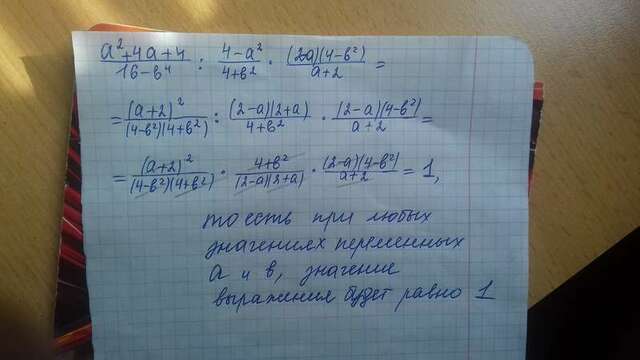 (a²+4a+4)/(16-b⁴) : (4-a²)/(4+b²) · ((2a)(4-b²))/(a+2) =
= (a+2)²/((4-b²)(4+b²)) : ((2-a)(2+a))/(4+b²) · ((2-a)(4-b²))/(a+2) =
= (a+2)²/((4-b²)(4+b²)) · (4+b²)/((2-a)(2+a)) · ((2-a)(4-b²))/(a+2) = 1,
то есть при любых
значениях переменных
а и в, значение
выражение будет равно 1